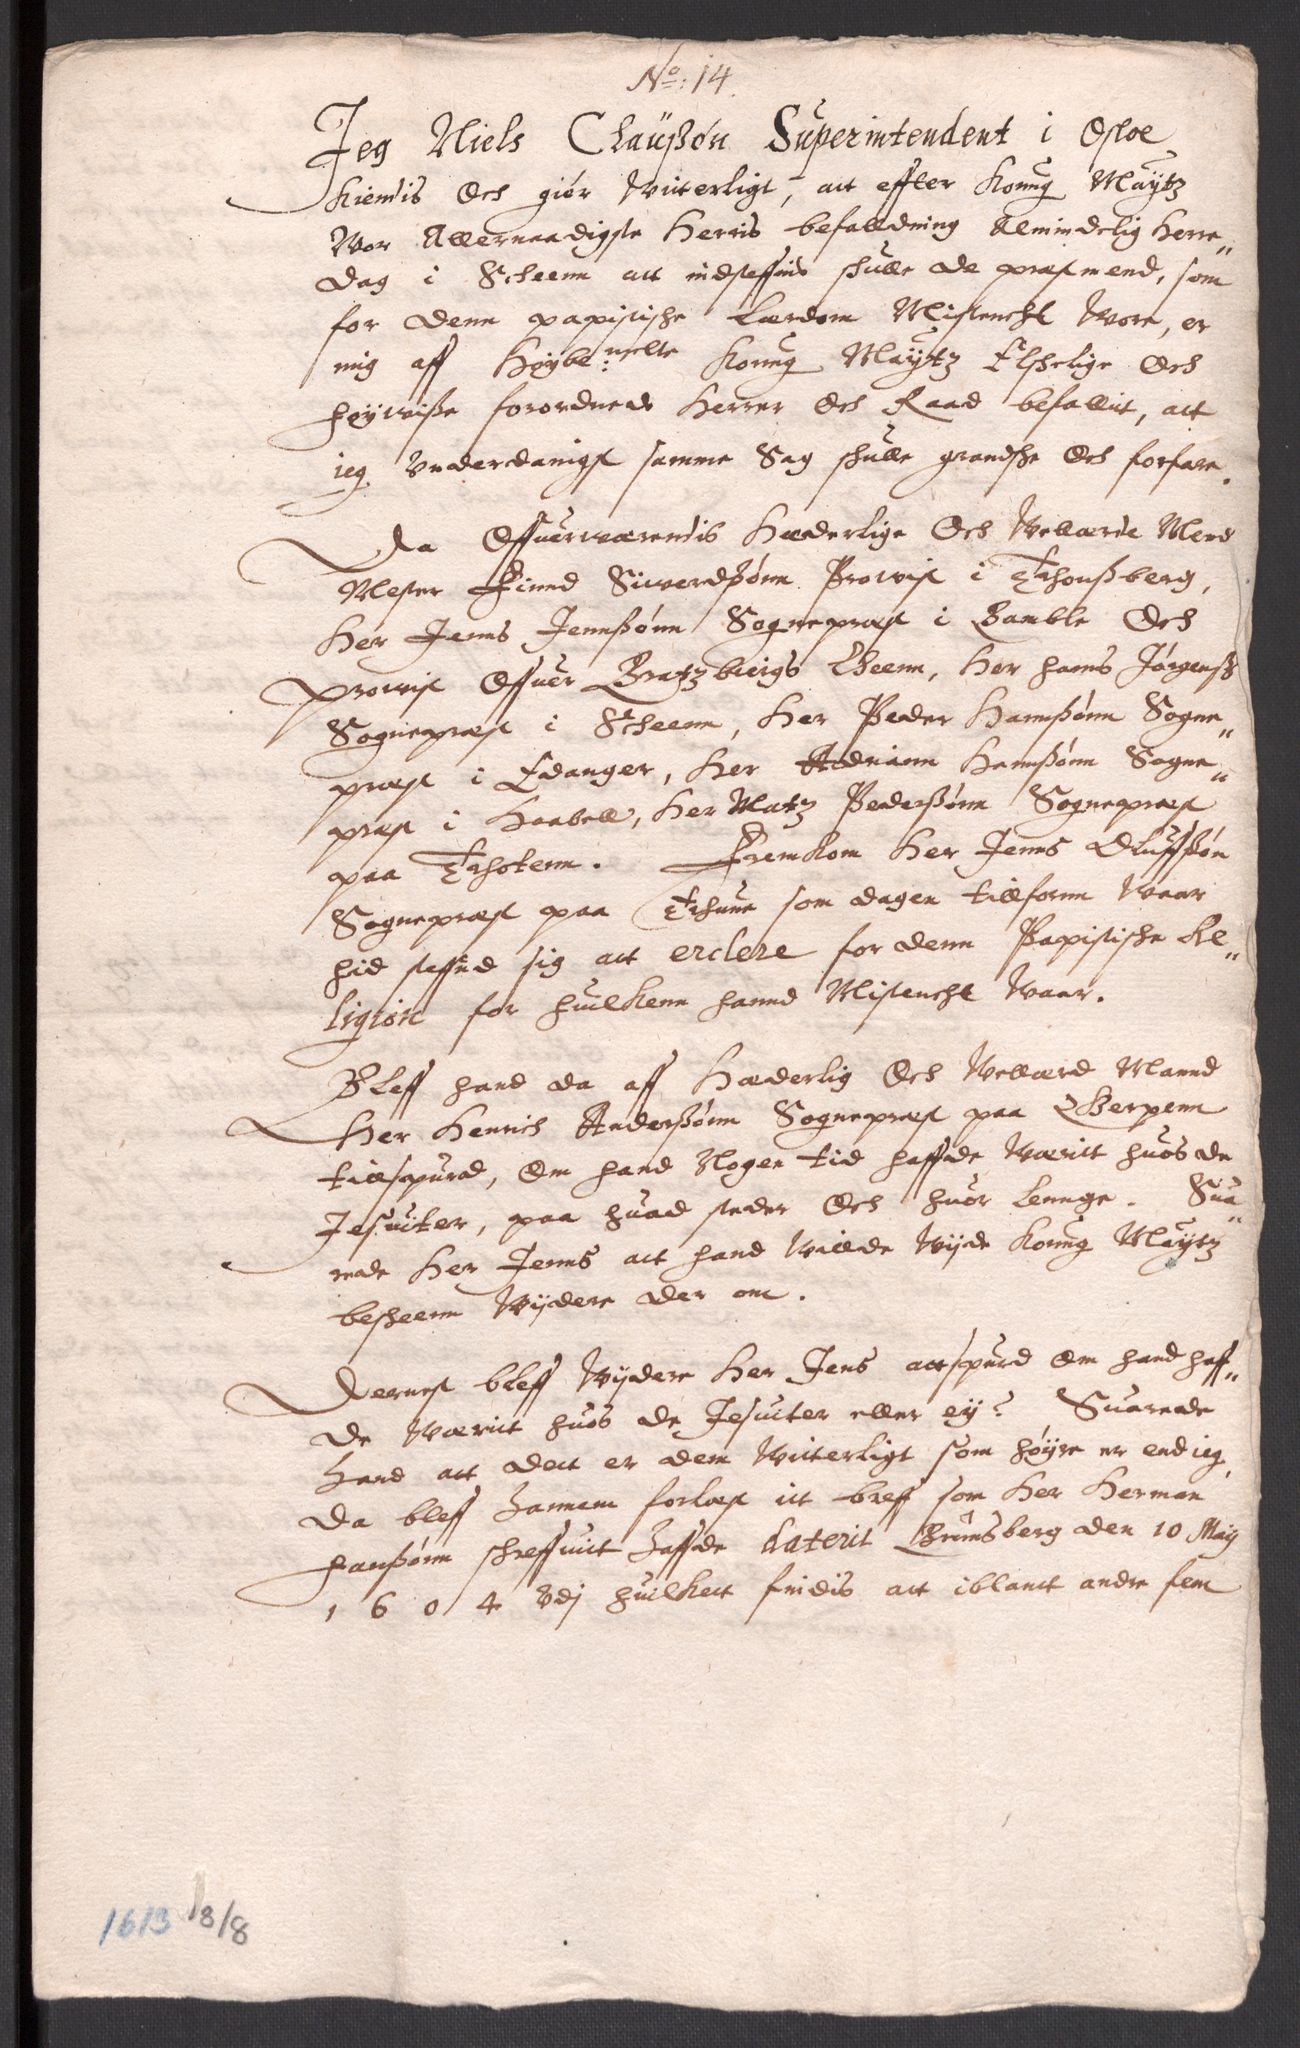 No: 14.
Jeg Niels Claüßøn Superintendent i Osloe
Kiendis Och giør Witterligt, att effter Konng Maÿtz
Wor Allernaadigste Herris befalldning Almindelig Herre„
dag i Scheenn att indsteffnis schulle de præstmend, som
for denn papistische Lærdom Mistencht Wore, er
mig aff Høÿbe: melte Konng Maÿtz Elschelige Och
høÿwiße forordnede Herrer Och Raad befallit, att
ieg Vnderdanigst samme Sag schulle grandsche Och forfare.
Da Offuerwærendis Hæderlige Och Vellærde Mend
Mester Find Siwerdßønn Prowist i Thonßberg,
Her Jenns Jennßønn Sognepræst i Bamble Och
prowist Offuer Bratzbiergs Lheenn, Her Hanns Jørgenß
Sognepræst i Scheenn, Her Peder Hannßønn Sogne„
præst i Edanger, Her Adriann Hannßønn Sogne„
præst i Haabell, Her Matz Pederßønn Sognepræst
paa Thotenn. Fremkom Her Jenns Oluffßøn
Sognepræst paa Thune som dagen tillfornn Waar
hid steffnd sig att erclere for denn Papistische Re„
ligion for huilkenn hannd Mistencht Waar.
Bleff hand da aff Hæderlig Och Vellærd Mannd
Her Henrich Anderßønn Sognepræst paa Gherpenn
tillspurd, Om hand Nogen tid haffde Wærit huos de
Jesuiter, paa huad steder Och huor Lennge. Sua„
rede Her Jenns att hand Willde Wijde Konng Maÿtz
bescheenn Wÿdere der om.
Dernest bleff Wÿdere Her Jens attspurd Om hand haff„
de Wærit huos de Jesuiter eller eÿ? Suarede
Hand att dett er dem Witterligt som høÿre er end ieg,
Da bleff Hannem forlæst itt breff som Her Herman
Hanßønn schreffuit Haffde daterit Brunsberg den 10 Maÿ
1604 Vdj huilkett findis att iblant andre fem
1613 18/8